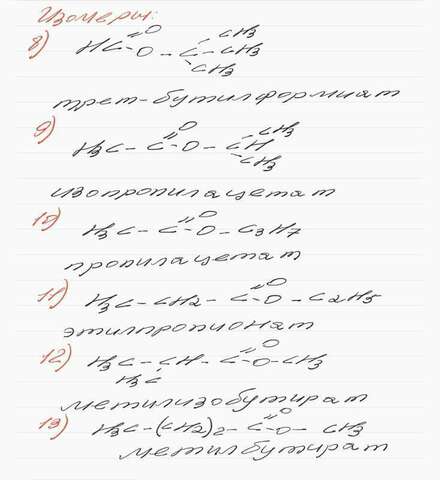 Изомеры:
8) HC=O-O-C-CH3
CH3
CH3
трет-бутилформиат
9) H3C-C=O-O-CH-CH3
CH3
изопропилацетат
10) H3C-C=O-O-C3H7
пропилацетат
11) H3C-CH2-C=O-O-C2H5
этилпропионат
12) H3C-CH-C=O-O-CH3
H3C
метилизобутират
13) H3C-(CH2)2-C=O-O-CH3
метилбутират